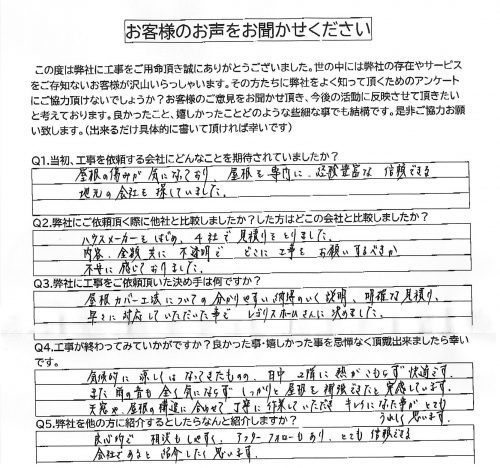 お客様のお声をお聞かせください
この度は弊社に工事をご用命頂き誠にありがとうございました。世の中には弊社の存在やサービス
をご存知ないお客様が沢山いらっしゃいます。その方たちに弊社をよく知って頂くためのアンケート
にご協力頂けないでしょうか？お客様のご意見をお聞かせ頂き、今後の活動に反映させて頂きたい
と考えております。良かったこと、嬉しかったことどのような些細な事でも結構です。是非ご協力お願
い致します。(出来るだけ具体的に書いて頂ければ幸いです)
Q1.当初、工事を依頼する会社にどんなことを期待されていましたか？
屋根の傷みが気になっており、屋根を専門に、経験豊富な信頼できる
地元の会社を探していました。
Q2.弊社にご依頼頂く際に他社と比較しましたか？した方はどこの会社と比較しましたか？
ハウスメーカーをはじめ、4社で見積りをとりました。
内容、金額共に不透明でどこに工事をお願いするべきか
不安に感じておりました。
Q3.弊社に工事をご依頼頂いた決め手は何ですか？
屋根カバー工法についての分かりやすい納得のいく説明、明確な見積り、
早々に対応していただいた事でレゴリスホームさんに決めました。
Q4.工事が終わってみていかがですか？良かった事・嬉しかった事を忌憚なく頂戴出来ましたら幸い
です。
気候的に涼しくはなってきたものの、日中2階に熱がこもらず快適です。
また雨の音も全く気にならずしっかりと屋根を補強できたと実感しています。
天窓や、屋根の構造に合わせて丁寧に作業していただききれいになった事がとても
うれしく思います。
Q5.弊社を他の方に紹介するとしたらなんと紹介しますか？
良心的で相談もしやすく、アフターフォローもあり、とても信頼できる
会社であると紹介したく思います。